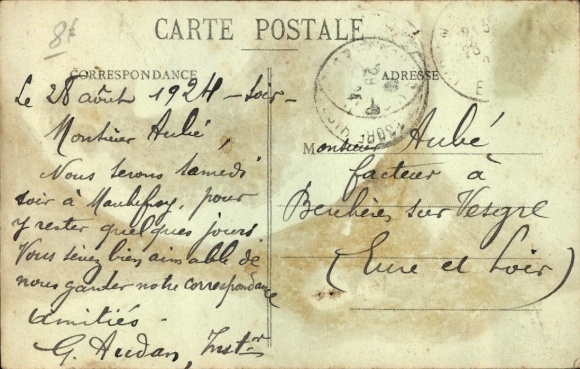 8f
CARTE POSTALE
CORRESPONDANCE
ADRESSE
Le 28 août 1924 - Soir -
Monsieur Aubé,
Nous serons samedi
soir à pour
y rester quelques jours
Vous seriez bien aimable de
nous garder notre correspondance
Amitiés.
G. Audan, Instor
Monsieur Aubé
facteur à
Berchères sur Vesgre
(Eure et Loir)